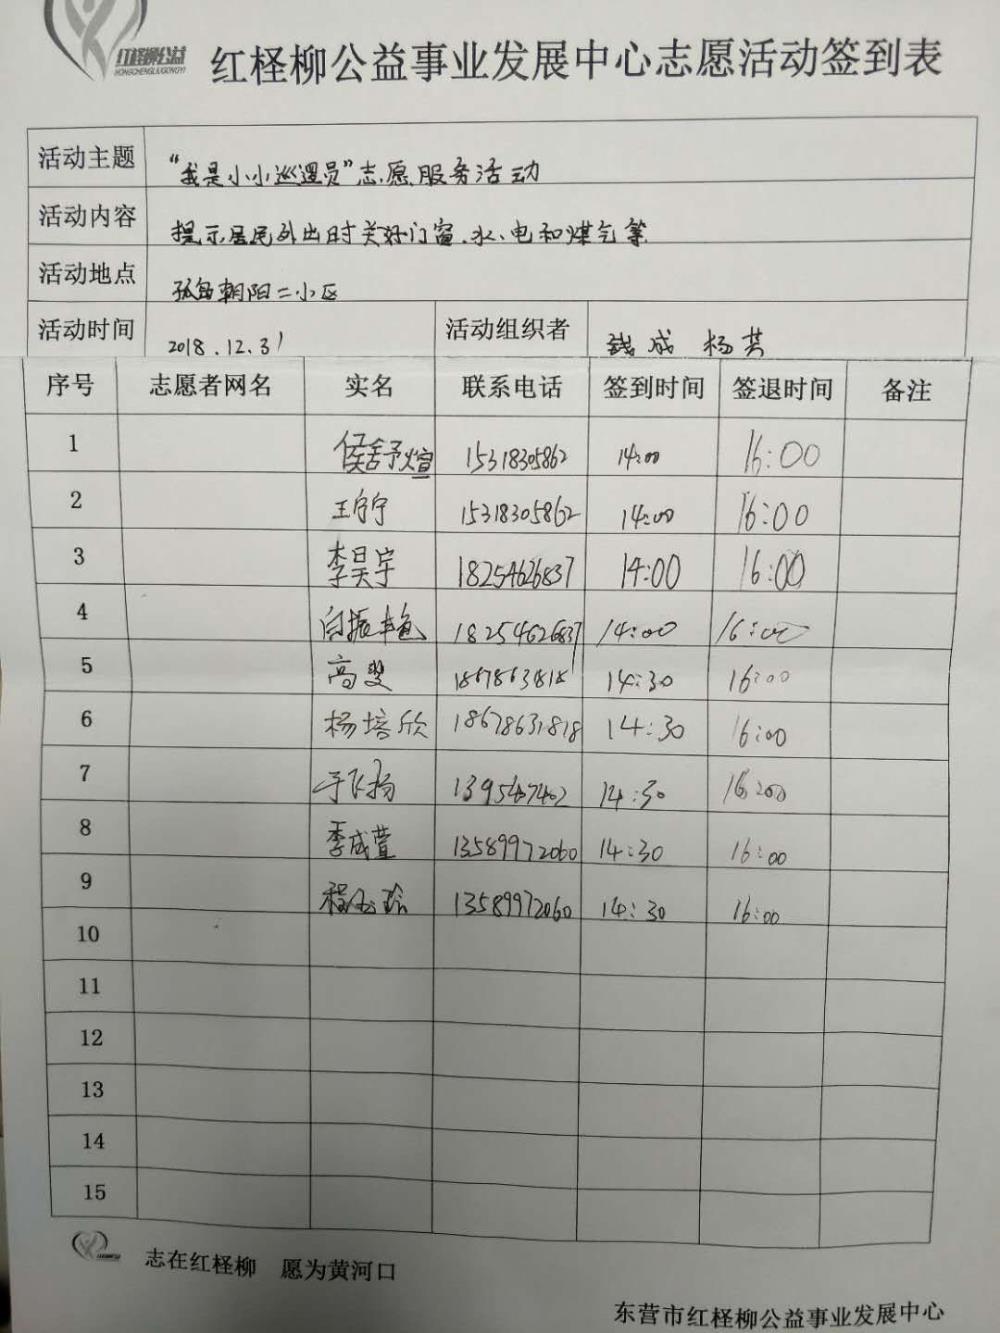 红柽柳公益
HONGCHENGLIUGONGYI
红柽柳公益事业发展中心志愿活动签到表
活动主题 “我是小小巡逻员”志愿服务活动
活动内容 提示居民外出时关好门窗、水、电和煤气等
活动地点 孤岛朝阳二小区
活动时间 2018.12.31 活动组织者 钱成 杨芸
序号 志愿者网名 实名 联系电话 签到时间 签退时间 备注
1 侯舒煊 15318305862 14:00 16:00
2 王宁宁 15318305862 14:00 16:00
3 李昊宇 18254626837 14:00 16:00
4 18254626837 14:00 16:00
5 高斐 14:30 16:00
6 杨培欣 18678631818 14:30 16:00
7 于飞扬 14:30 16:00
8 季成萱 13589972060 14:30 16:00
9 13589972060 14:30 16:00
10
11
12
13
14
15
志在红柽柳 愿为黄河口
东营市红柽柳公益事业发展中心